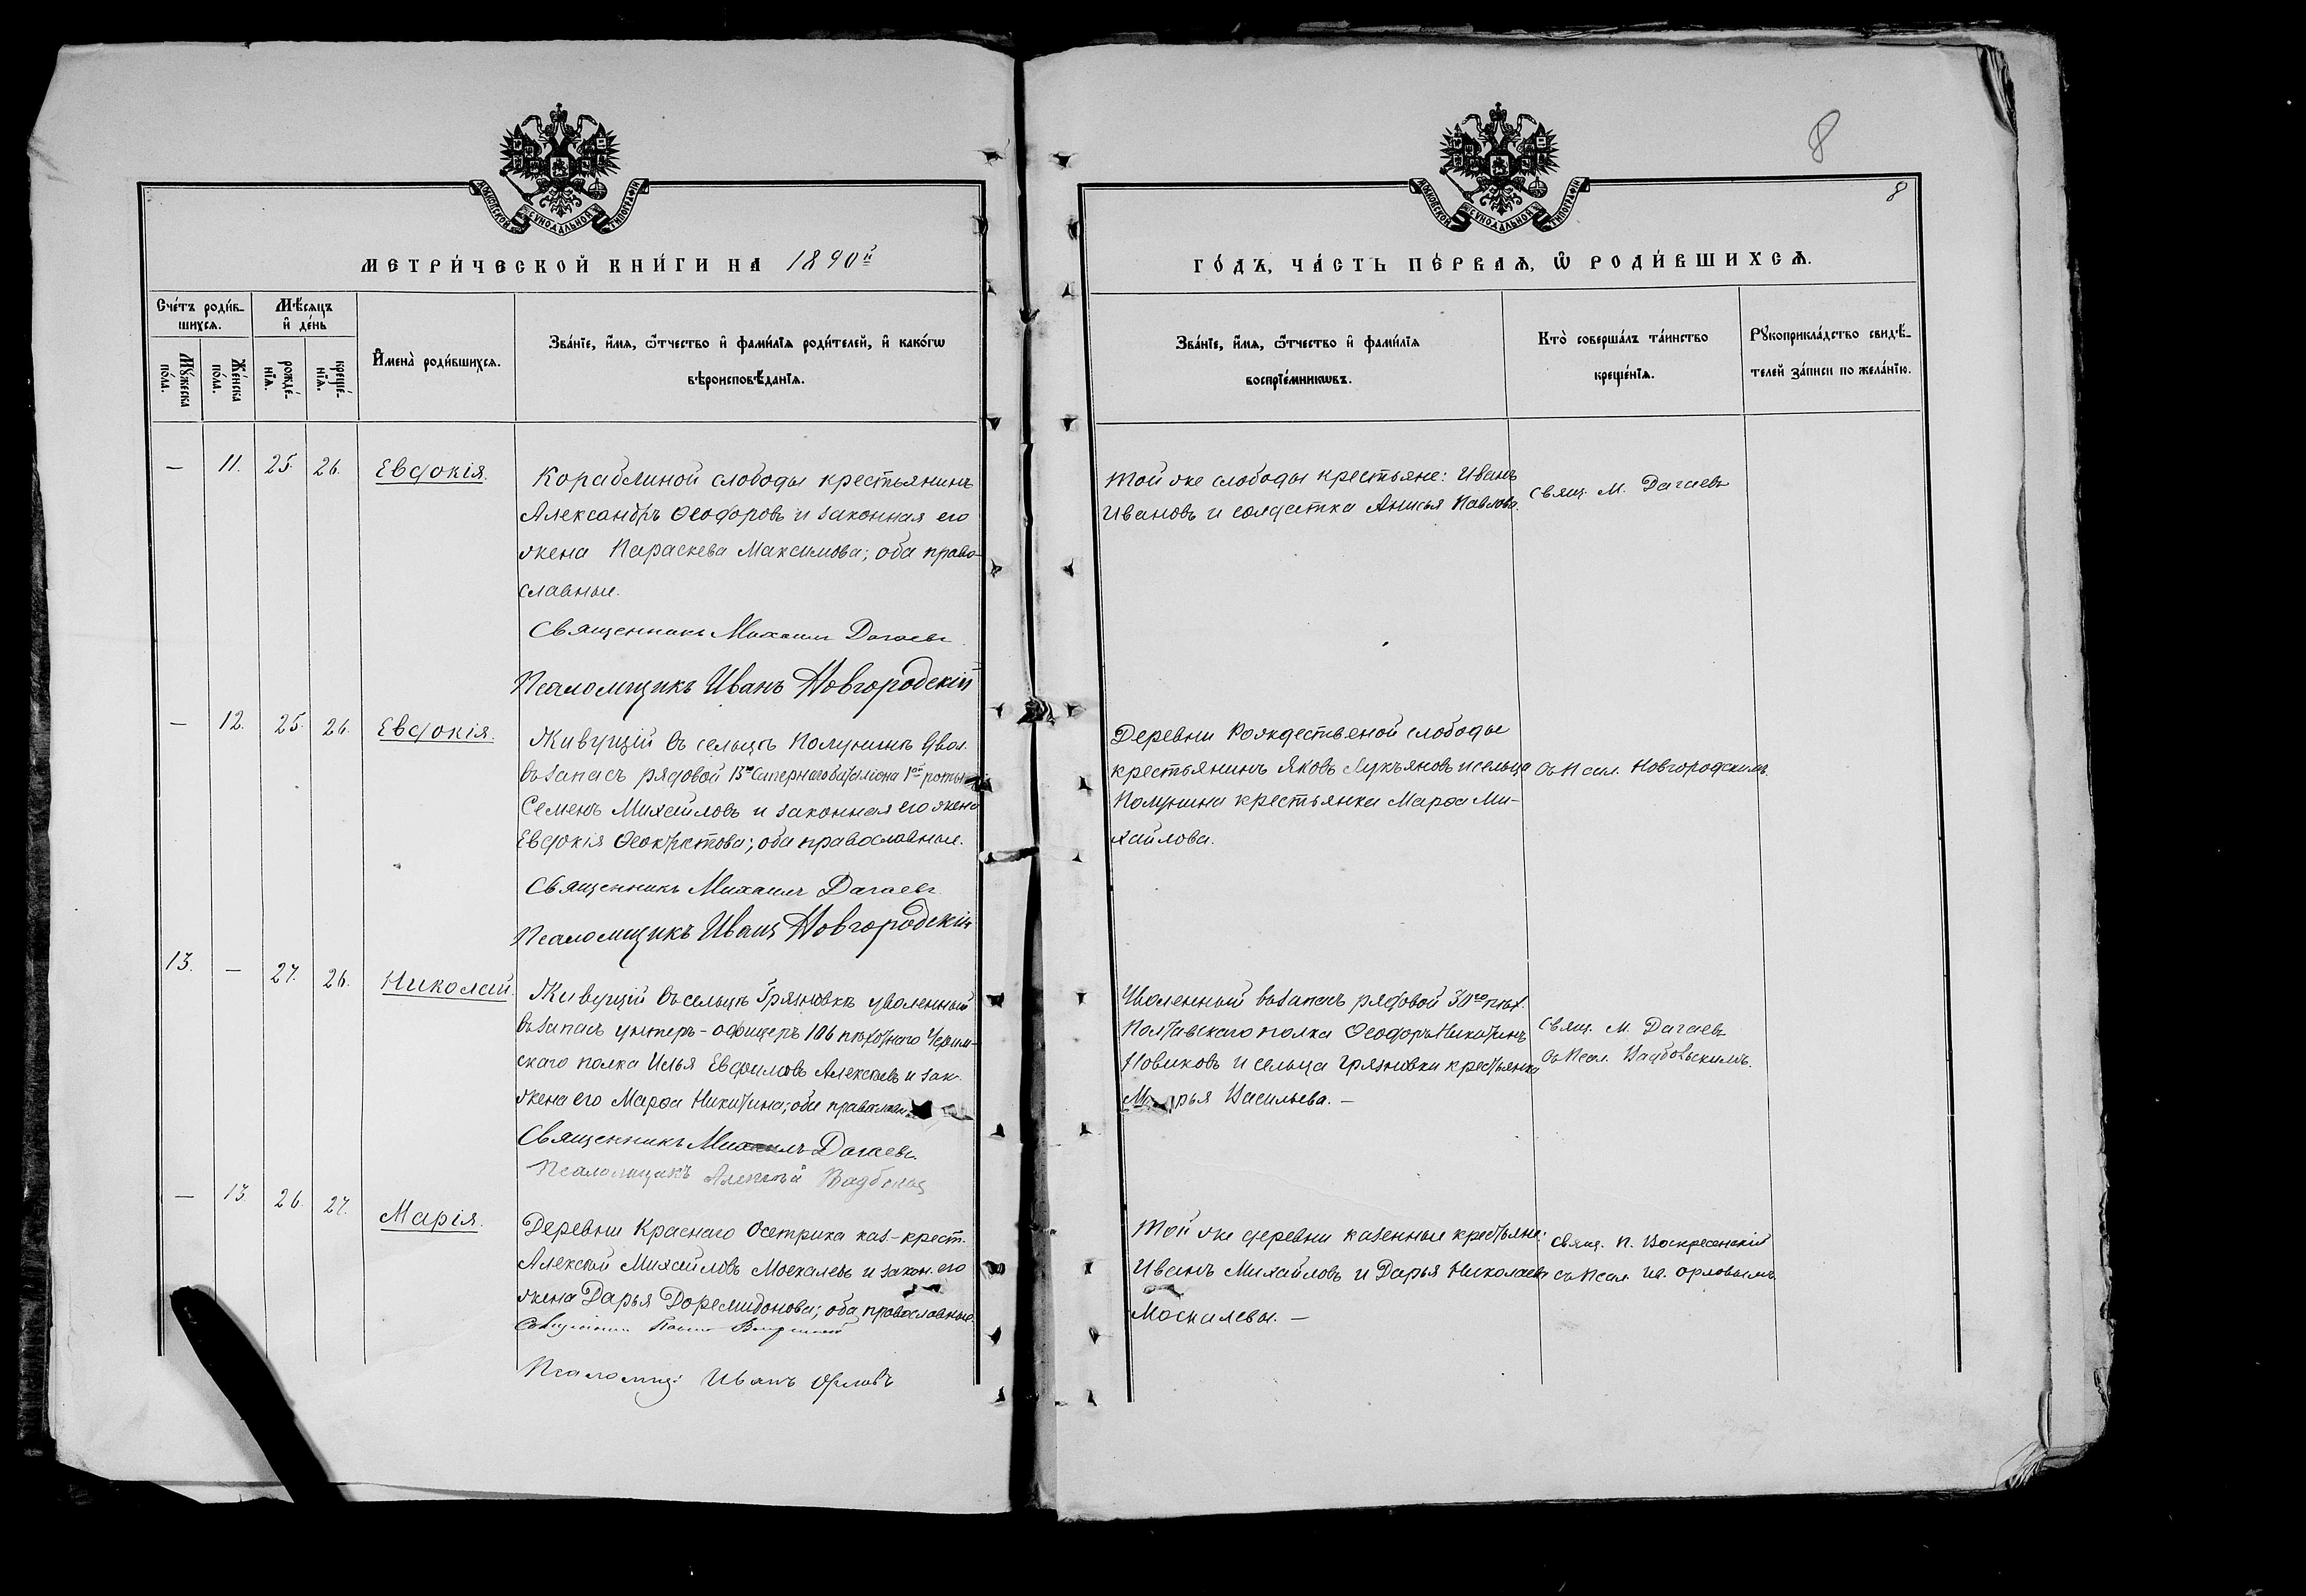 8
8
МОСКОВСКОЙ СѴНОДАЛЬНОЙ ТИПОГРАФІИ
МЕТРИ́ЧЕСКОЙ КНИ́ГИ НА 1890й
Сче́тъ роди́в-
шихсѧ.
Мѣ́сяцъ
и҆ де́нь
Мꙋ́жеска
по́ла.
Же́нска
по́ла.
рожде́-
нїѧ.
креще́-
нїѧ.
И҆мена̀ роди́вшихсѧ.
Зва́нїе, и҆́мѧ, ѻ҆́тчество и҆ фами́лїѧ роди́телей, и҆ како́гѡ
вѣроисповѣ́данїѧ.
— 11. 25. 26. Евдокія.
Кораблиной слободы крестьянинъ
Александръ Ѳеодоровъ и законная его
жена Параскева Максимова; оба право-
славные.
Священникъ Михаилъ Дагаевъ
Псаломщикъ Иванъ Новгородскій
— 12. 25. 26. Евдокія.
Живущій въ сельцѣ Полунинѣ увол.
въ запасъ рядовой 13го Сапернаго баталіона 1ой роты
Семенъ Михайловъ и законная его жена
Евдокія Ѳеоктистова; оба православные.
Священникъ Михаилъ Дагаевъ
Псаломщикъ Иванъ Новгородскій
13. — 27. 26. Николай.
Живущій въ сельцѣ Грязновкѣ уволенный
въ запасъ унтеръ-офицеръ 106 пѣхотнаго
скаго полка Илья Алексѣевъ и зак.
жена его Марѳа Никитина; оба
Священникъ Михаилъ Дагаевъ.
Псаломщикъ Алексѣй
— 13. 26. 27. Марія.
Деревни Краснаго Осетрика каз. крест.
Алексѣй Михайловъ Москалевъ и закон. его
жена Дарья Доремидонова; оба православные.
Священникъ
Псаломщ: Иванъ Орловъ
МОСКОВСКОЙ СѴНОДАЛЬНОЙ ТИПОГРАФІИ
ГО́ДЪ, ЧА́СТЬ ПЕ́РВАѦ, Ѡ҆ РОДИ́ВШИХСѦ.
Зва́нїе, и҆́мѧ, ѻ҆́тчество и҆ фами́лїѧ
воспрїе́мникѡвъ.
Кто̀ соверша́лъ та́инство
креще́нїѧ.
Рꙋкоприкла́дство свидѣ́-
телей за́писи по жела́нїю.
Той же слободы крестьяне: Иванъ
Ивановъ и солдатка Анисья Павлова.
Свящ. М. Дагаевъ
Деревни Рождественой слободы
крестьянинъ Яковъ Лукъяновъ и сельца
Полунина крестьянка Марѳа Ми-
хайлова.
съ Псал. Новгородскимъ.
Уволенный въ запасъ рядовой 30го пѣх.
Полтавскаго полка Ѳеодоръ Никитинъ
Новиковъ и сельца Грязновки крестьянка
Марья Васильева. —
Свящ. М. Дагаевъ
съ Псал.
Той же деревни казенные крестьяне:
Иванъ Михайловъ и Дарья Николаевы
Москалевы. —
Свящ. П. Воскресенскій
съ Псал. Ив. Орловымъ.